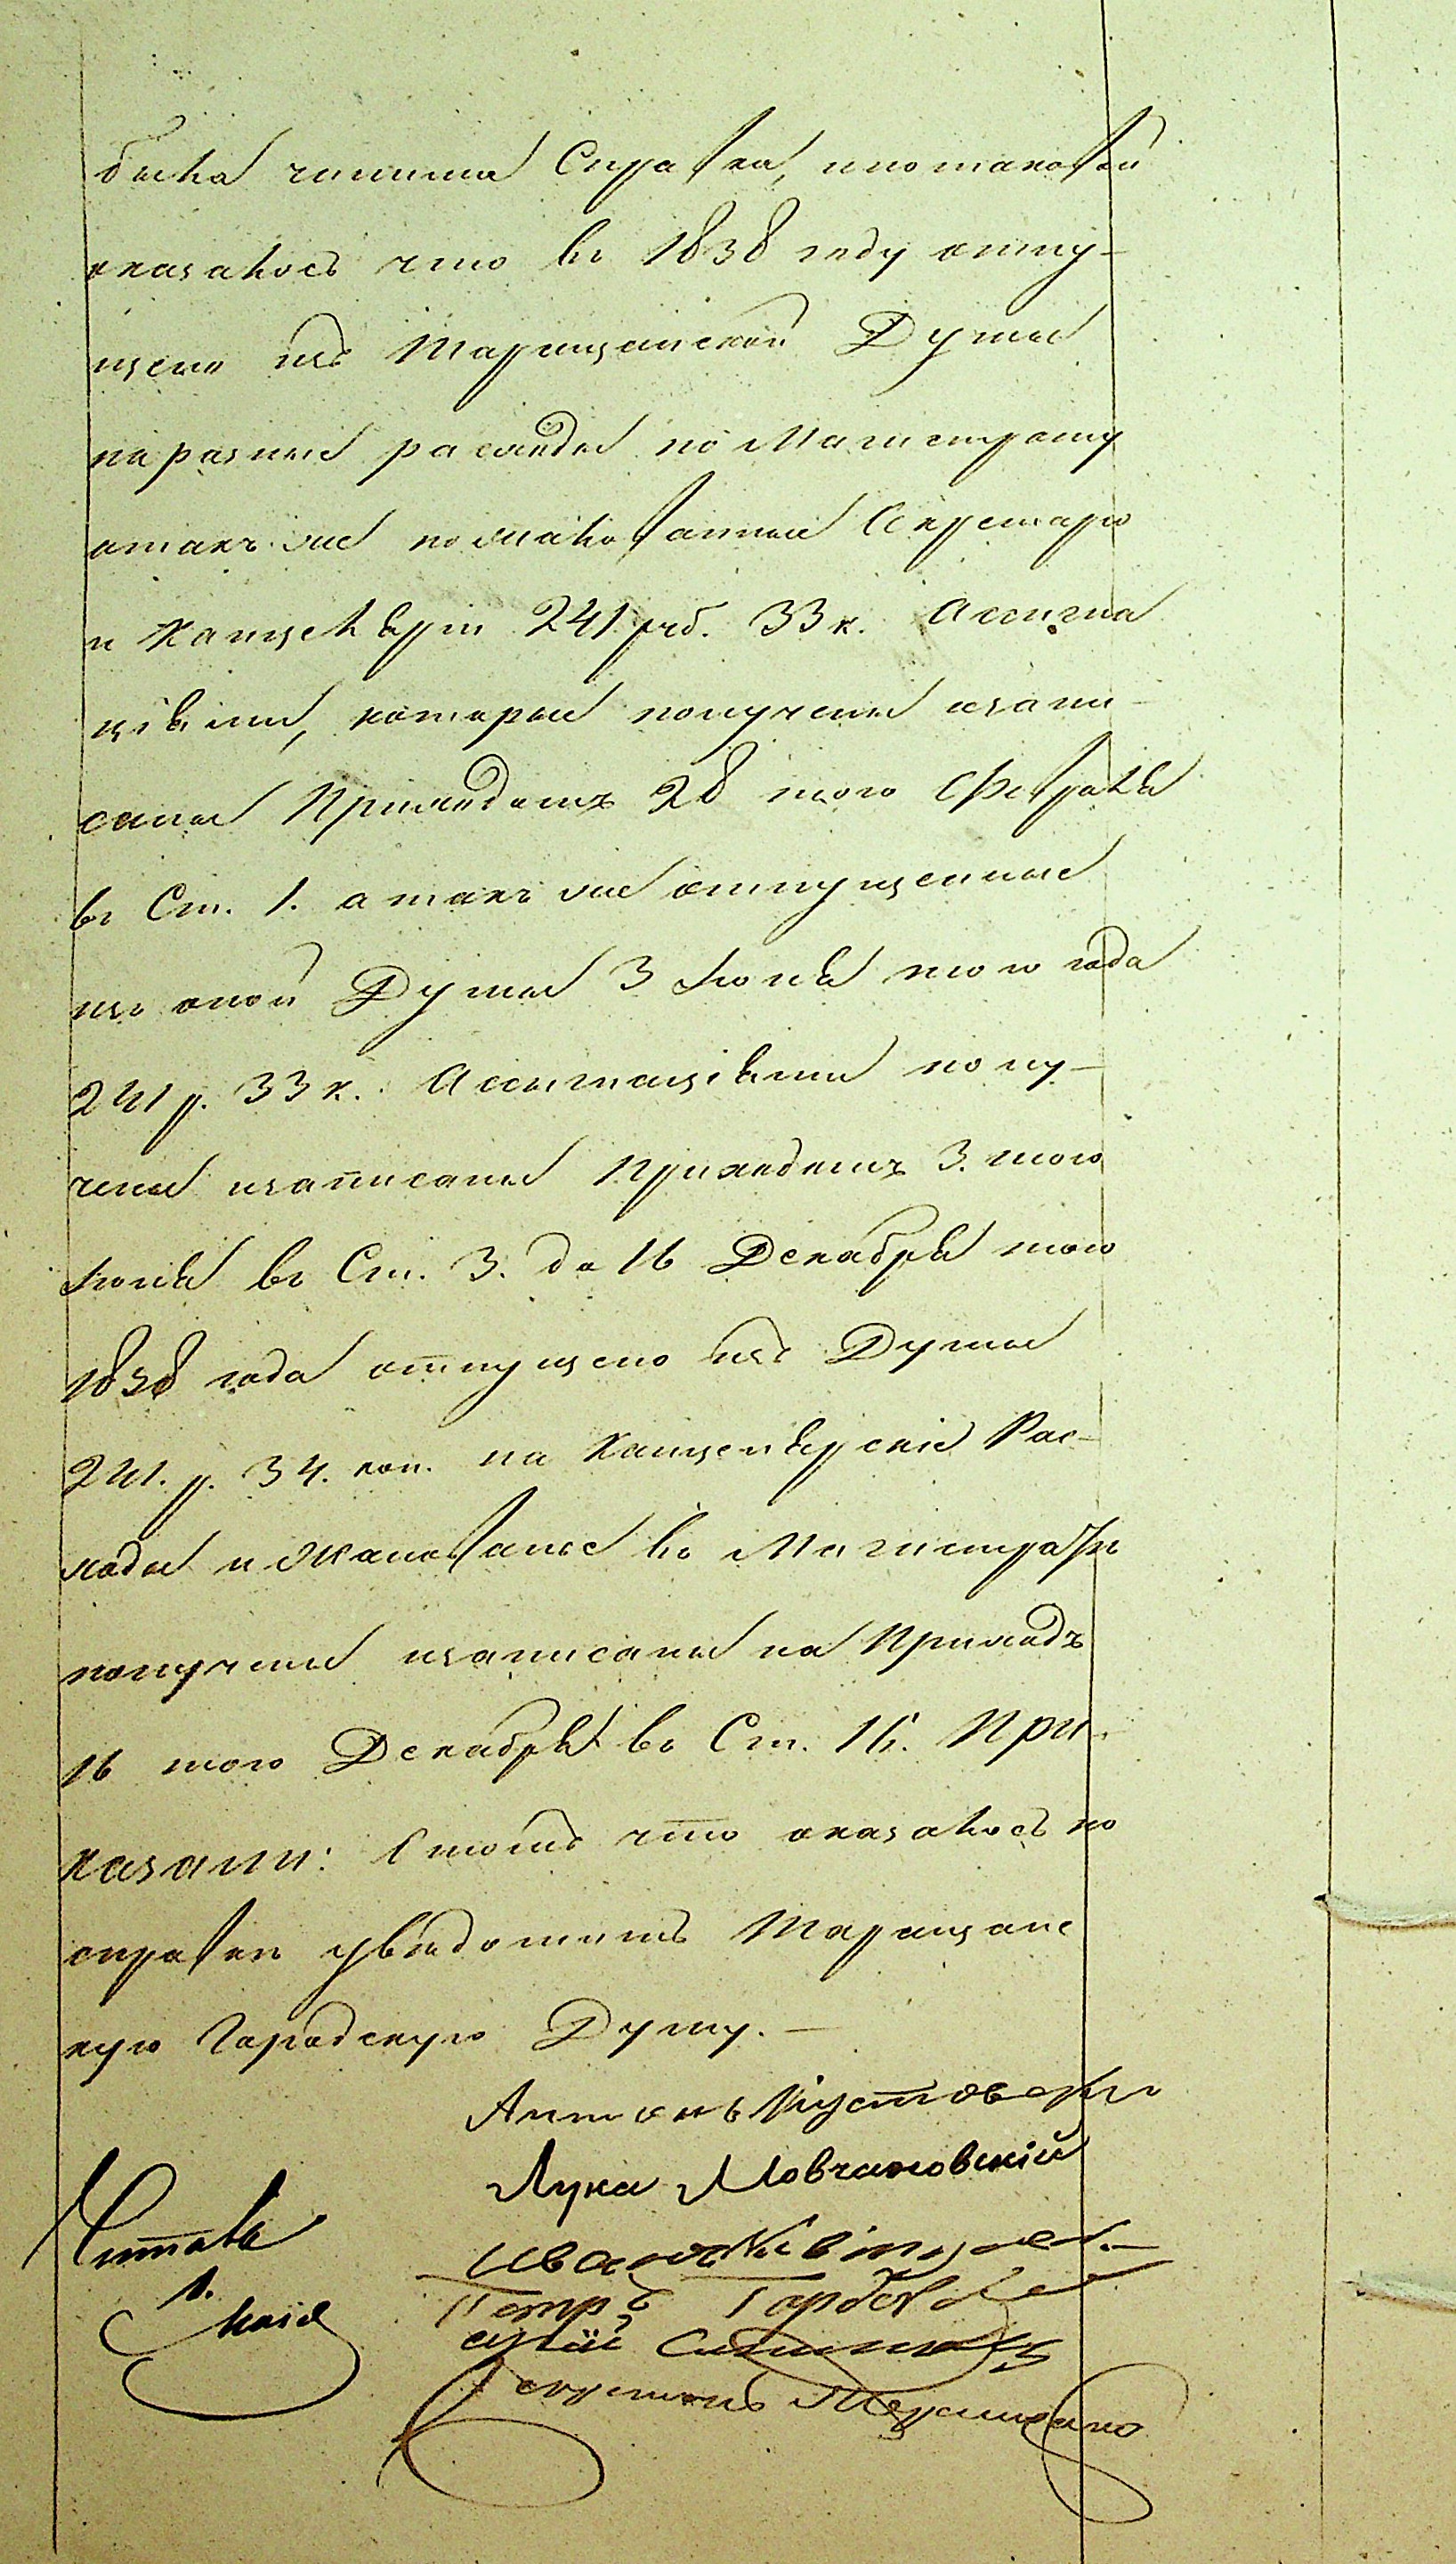 была чинима Справка, и по таковой
оказалось что въ 1838 году отпу-
щено изъ Таращанской Думы
на разные расходы по Магистрату
а такъ же по жалованью Секретарю
и Канцеляріи 241 руб. 33 к. Ассигна
ціями, которые получены и запи-
саны Приходомъ 28 того Февраля
въ Ст. 1. а такъ же отпущенные
изъ оной Думы 3 Іюня того года
241 р. 33 к. Ассигнаціями полу-
чены и записаны Приходомъ 3. того
Іюня въ Ст. 3. да 16 Декабря того
1838 года отпущено изъ Думы
241. р. 34. коп. на Канцелярскіе Рас-
ходы и Жалованье въ Магистратъ
получены и записаны на Приходъ
16 того Декабря въ Ст. 16. При-
казали: О томъ что оказалось по
справке уведомить Таращанс
кую Городскую Думу. —
Антонъ
Лука Мовчановскій
Иванъ
Петръ
Секретарь
Читалъ